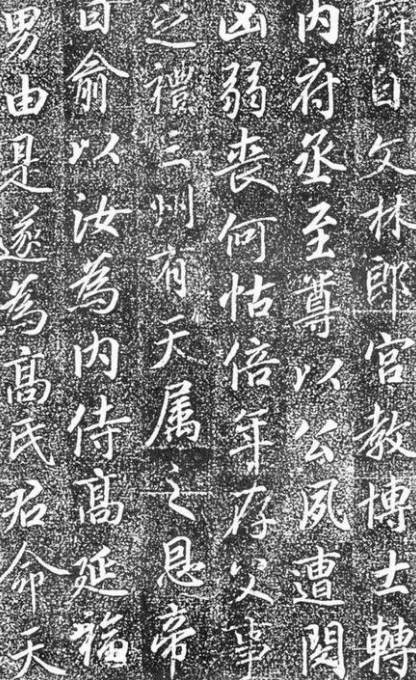 自文林郎宫教博士轉
内府丞至尊以公夙遭閔
凶弱喪何怙倍年存父事
之禮三州有天属之恩帝
曰俞以汝為内侍高延福
男由是遂為高氏君命天